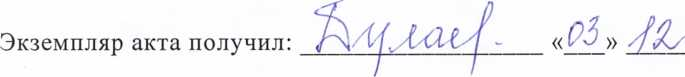 Экземпляр акта получил: Дулаев. «03» 12